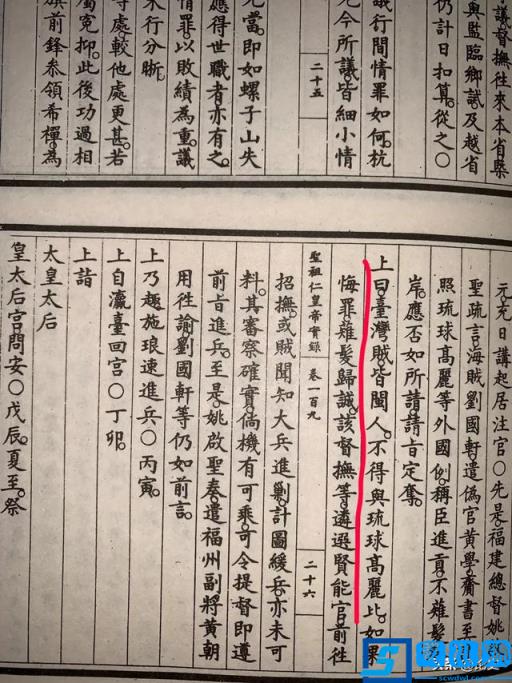 議督撫徃來本省縣
與監臨鄉試及越省
仍計日扣算。從之〇
議行間情罪如何。杭
今所議皆細小情
二十五
當。即如螺子山失
應得世職者亦有之。
情罪。以敗績為重。議
未行分晰。
等處。較他處更甚。若
冤抑。此後功過相
旗前鋒叅領希 為
元充日講起居注官〇先是福建總督姚
聖疏言海賊劉國軒。遣僞官黃學。齎書至
照琉球高麗等外國例。稱臣進貢。不薙髮
岸。應否如所請。請旨定奪。
上曰。臺灣賊皆閩人。不得與琉球高麗比。如果
悔罪薙髮歸誠。該督撫等。遴選賢能官前徃
聖祖仁皇帝實錄 卷一百九
二十六
招撫。或賊聞知大兵進剿。計圖緩兵。亦未可
料。其審察確實。倘機有可乘。可令提督即遵
前旨進兵。至是。姚啟聖奏。遣福州副將黃朝
用徃諭劉國軒等仍如前言。
上乃趣施琅速進兵〇丙寅。
上自瀛臺回宮〇丁卯。
上詣
太皇太后
皇太后宮問安〇戊辰。夏至。祭
www.scwdwl.com